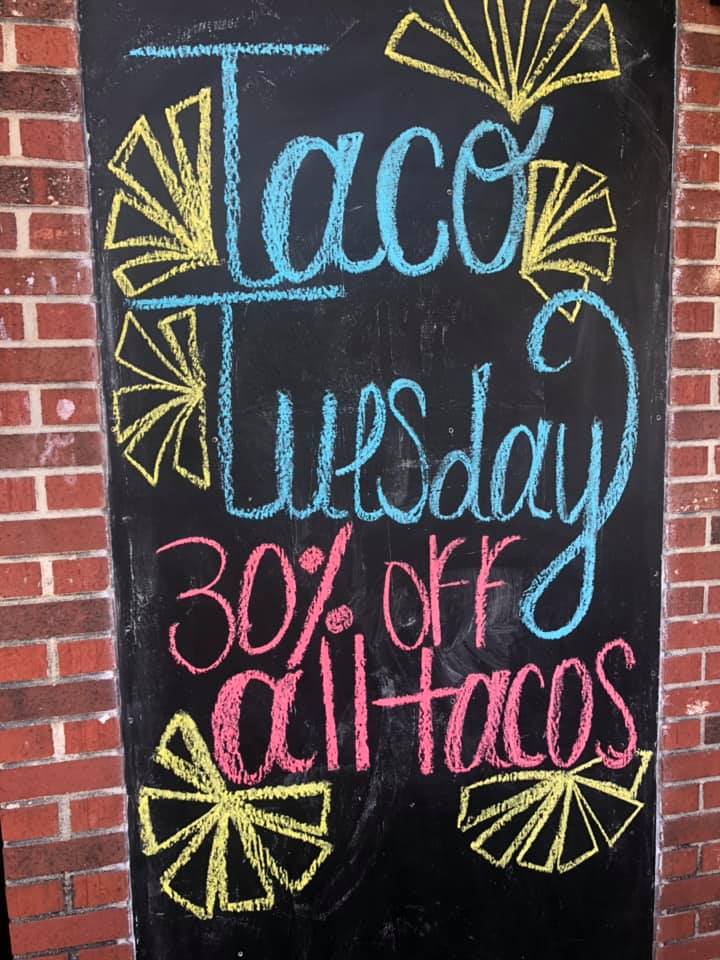 Taco
Tuesday
30% off
all tacos